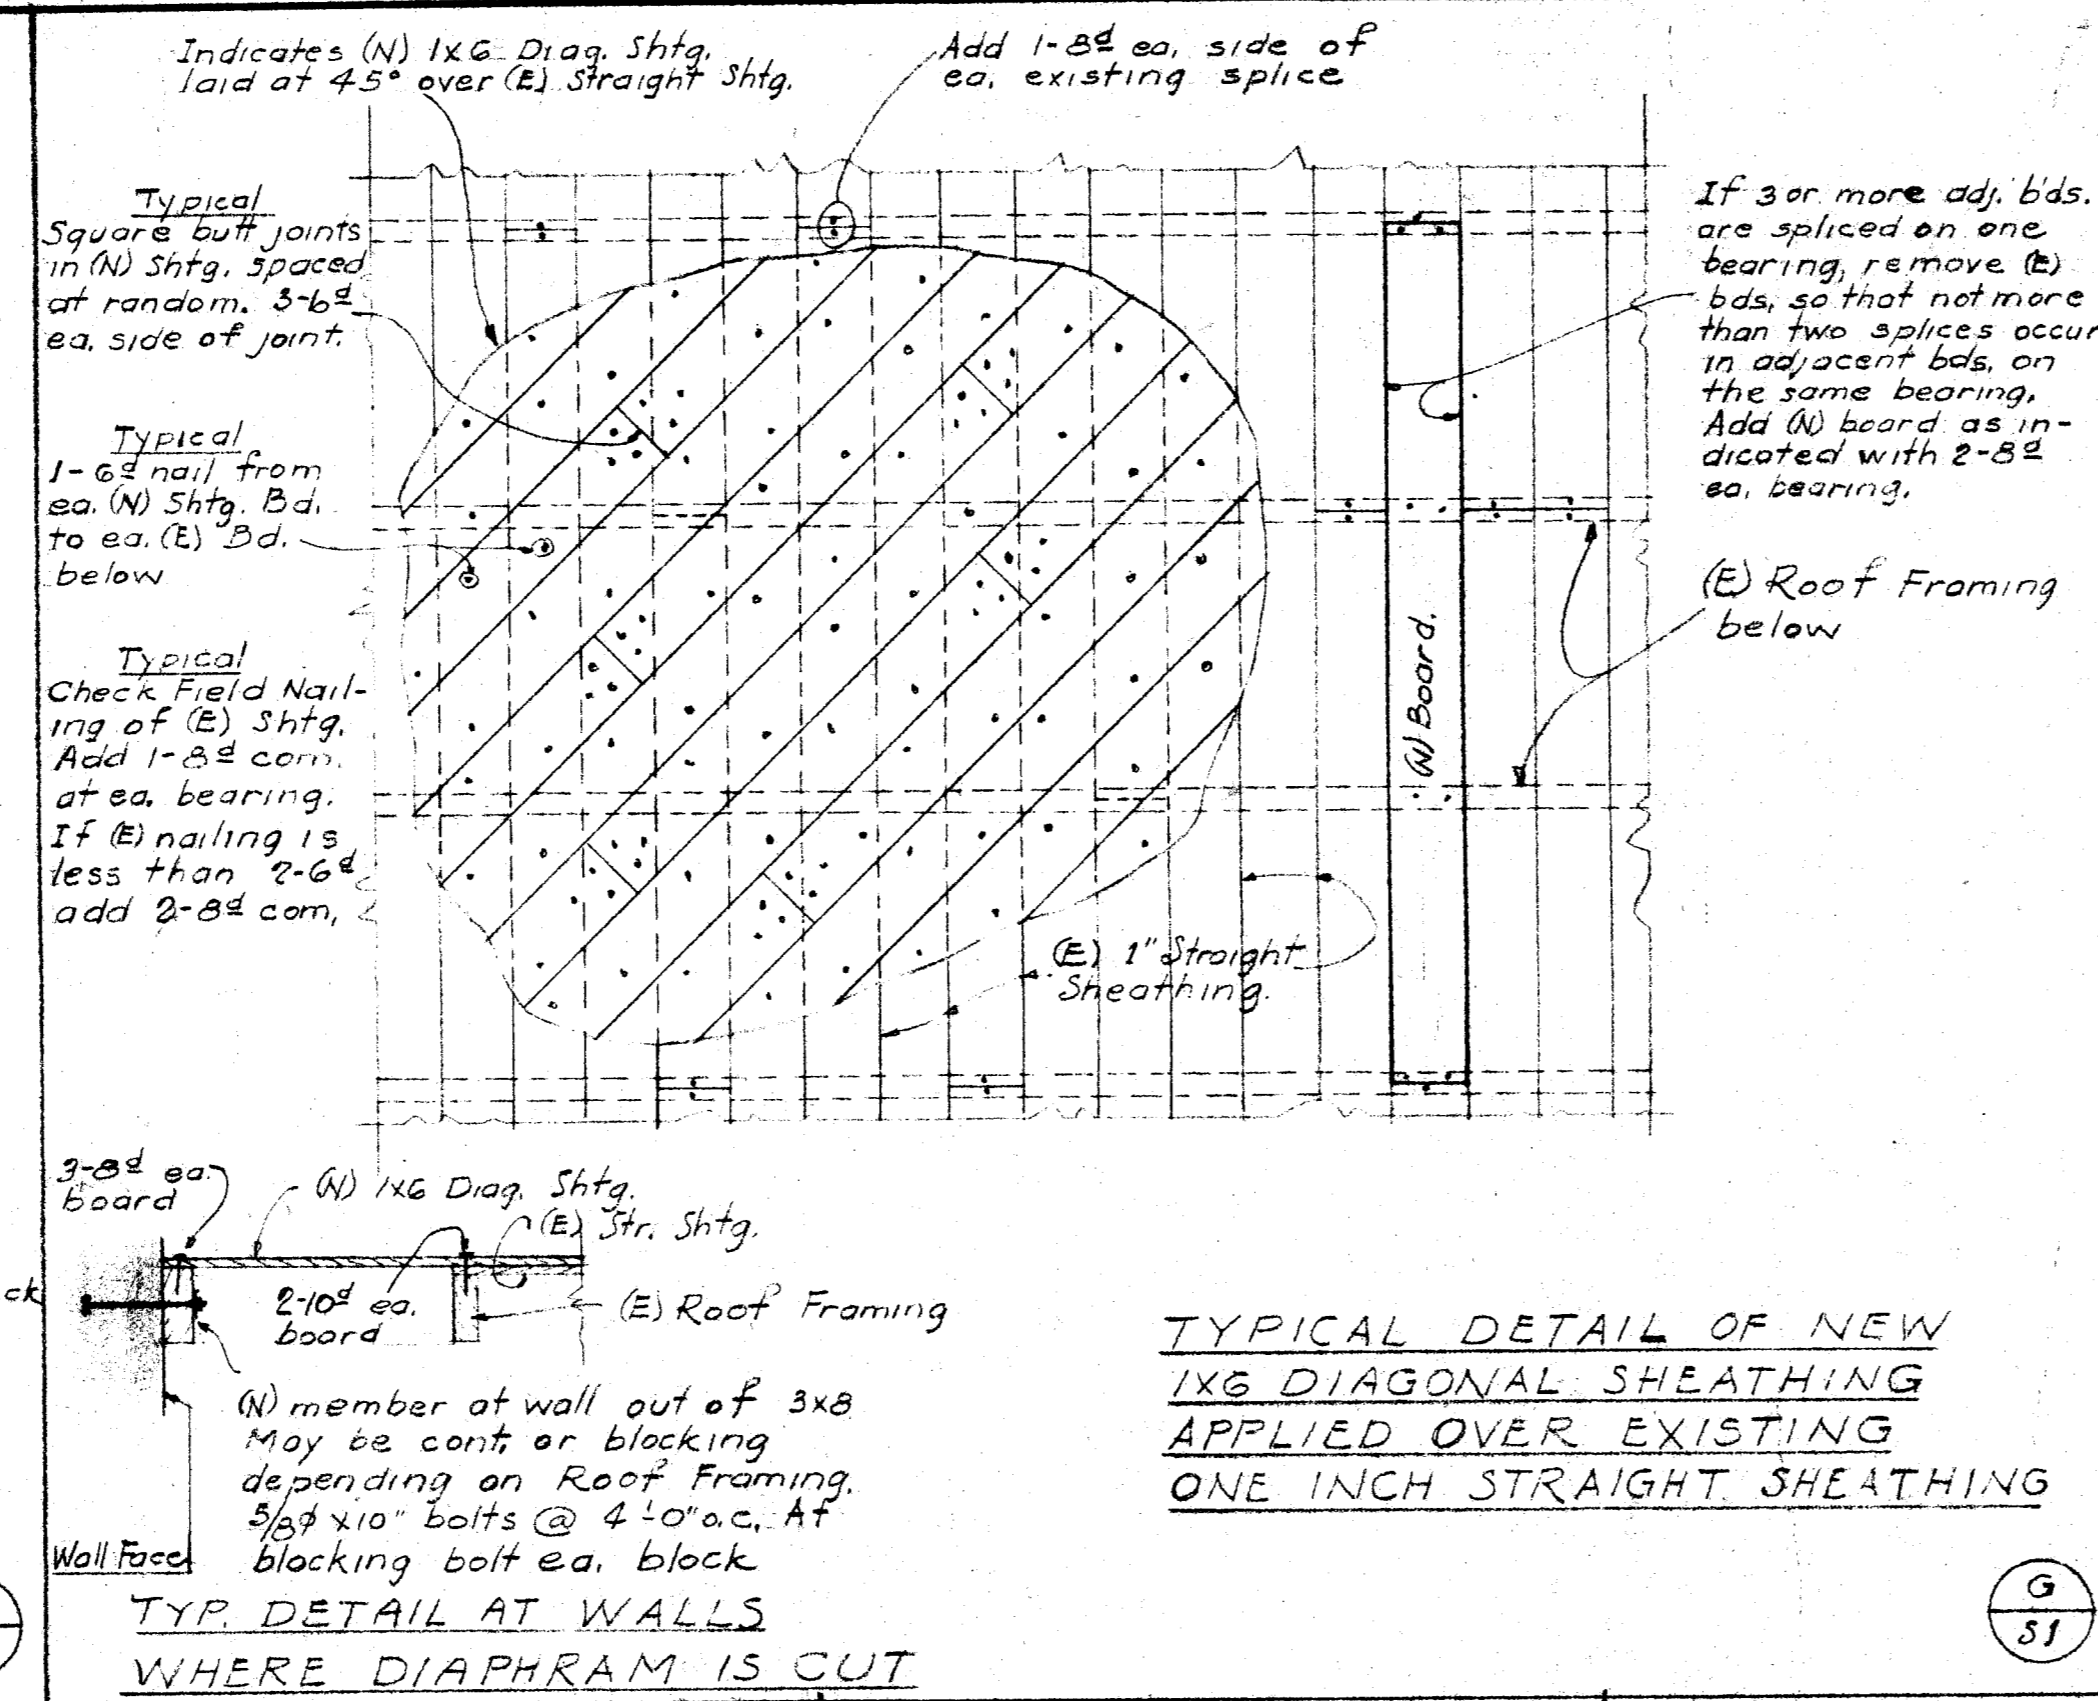 Indicates (N) 1x6 Diag. Shtg.
laid at 45° over (E) Straight Shtg.
Add 1-8d ea. side of
ea. existing splice
Typical
Square butt joints
in (N) Shtg. spaced
at random. 3-6d
ea. side of joint.
Typical
1-6d nail from
ea. (N) Shtg. Bd.
to ea. (E) Bd.
below
Typical
Check Field Nail-
ing of (E) Shtg.
Add 1-8d com.
at ea. bearing.
If (E) nailing is
less than 2-6d
add 2-8d com,
If 3 or more adj. b'ds.
are spliced on one
bearing, remove (E)
bds, so that not more
than two splices occur
in adjacent bds, on
the same bearing.
Add (N) board as in-
dicated with 2-8d
ea. bearing.
(E) Roof Framing
below
(N) Board.
(E) 1" Straight
Sheathing.
3-8d ea.
board
(N) 1x6 Diag. Shtg.
(E) Str. Shtg.
ck
2-10d ea.
board
(E) Roof Framing
(N) member at wall out of 3x8
May be cont. or blocking
depending on Roof Framing.
5/8φ x10" bolts @ 4'-0" o.c. At
blocking bolt ea. block
Wall Face
TYP. DETAIL AT WALLS
WHERE DIAPHRAM IS CUT
TYPICAL DETAIL OF NEW
1X6 DIAGONAL SHEATHING
APPLIED OVER EXISTING
ONE INCH STRAIGHT SHEATHING
G
S1